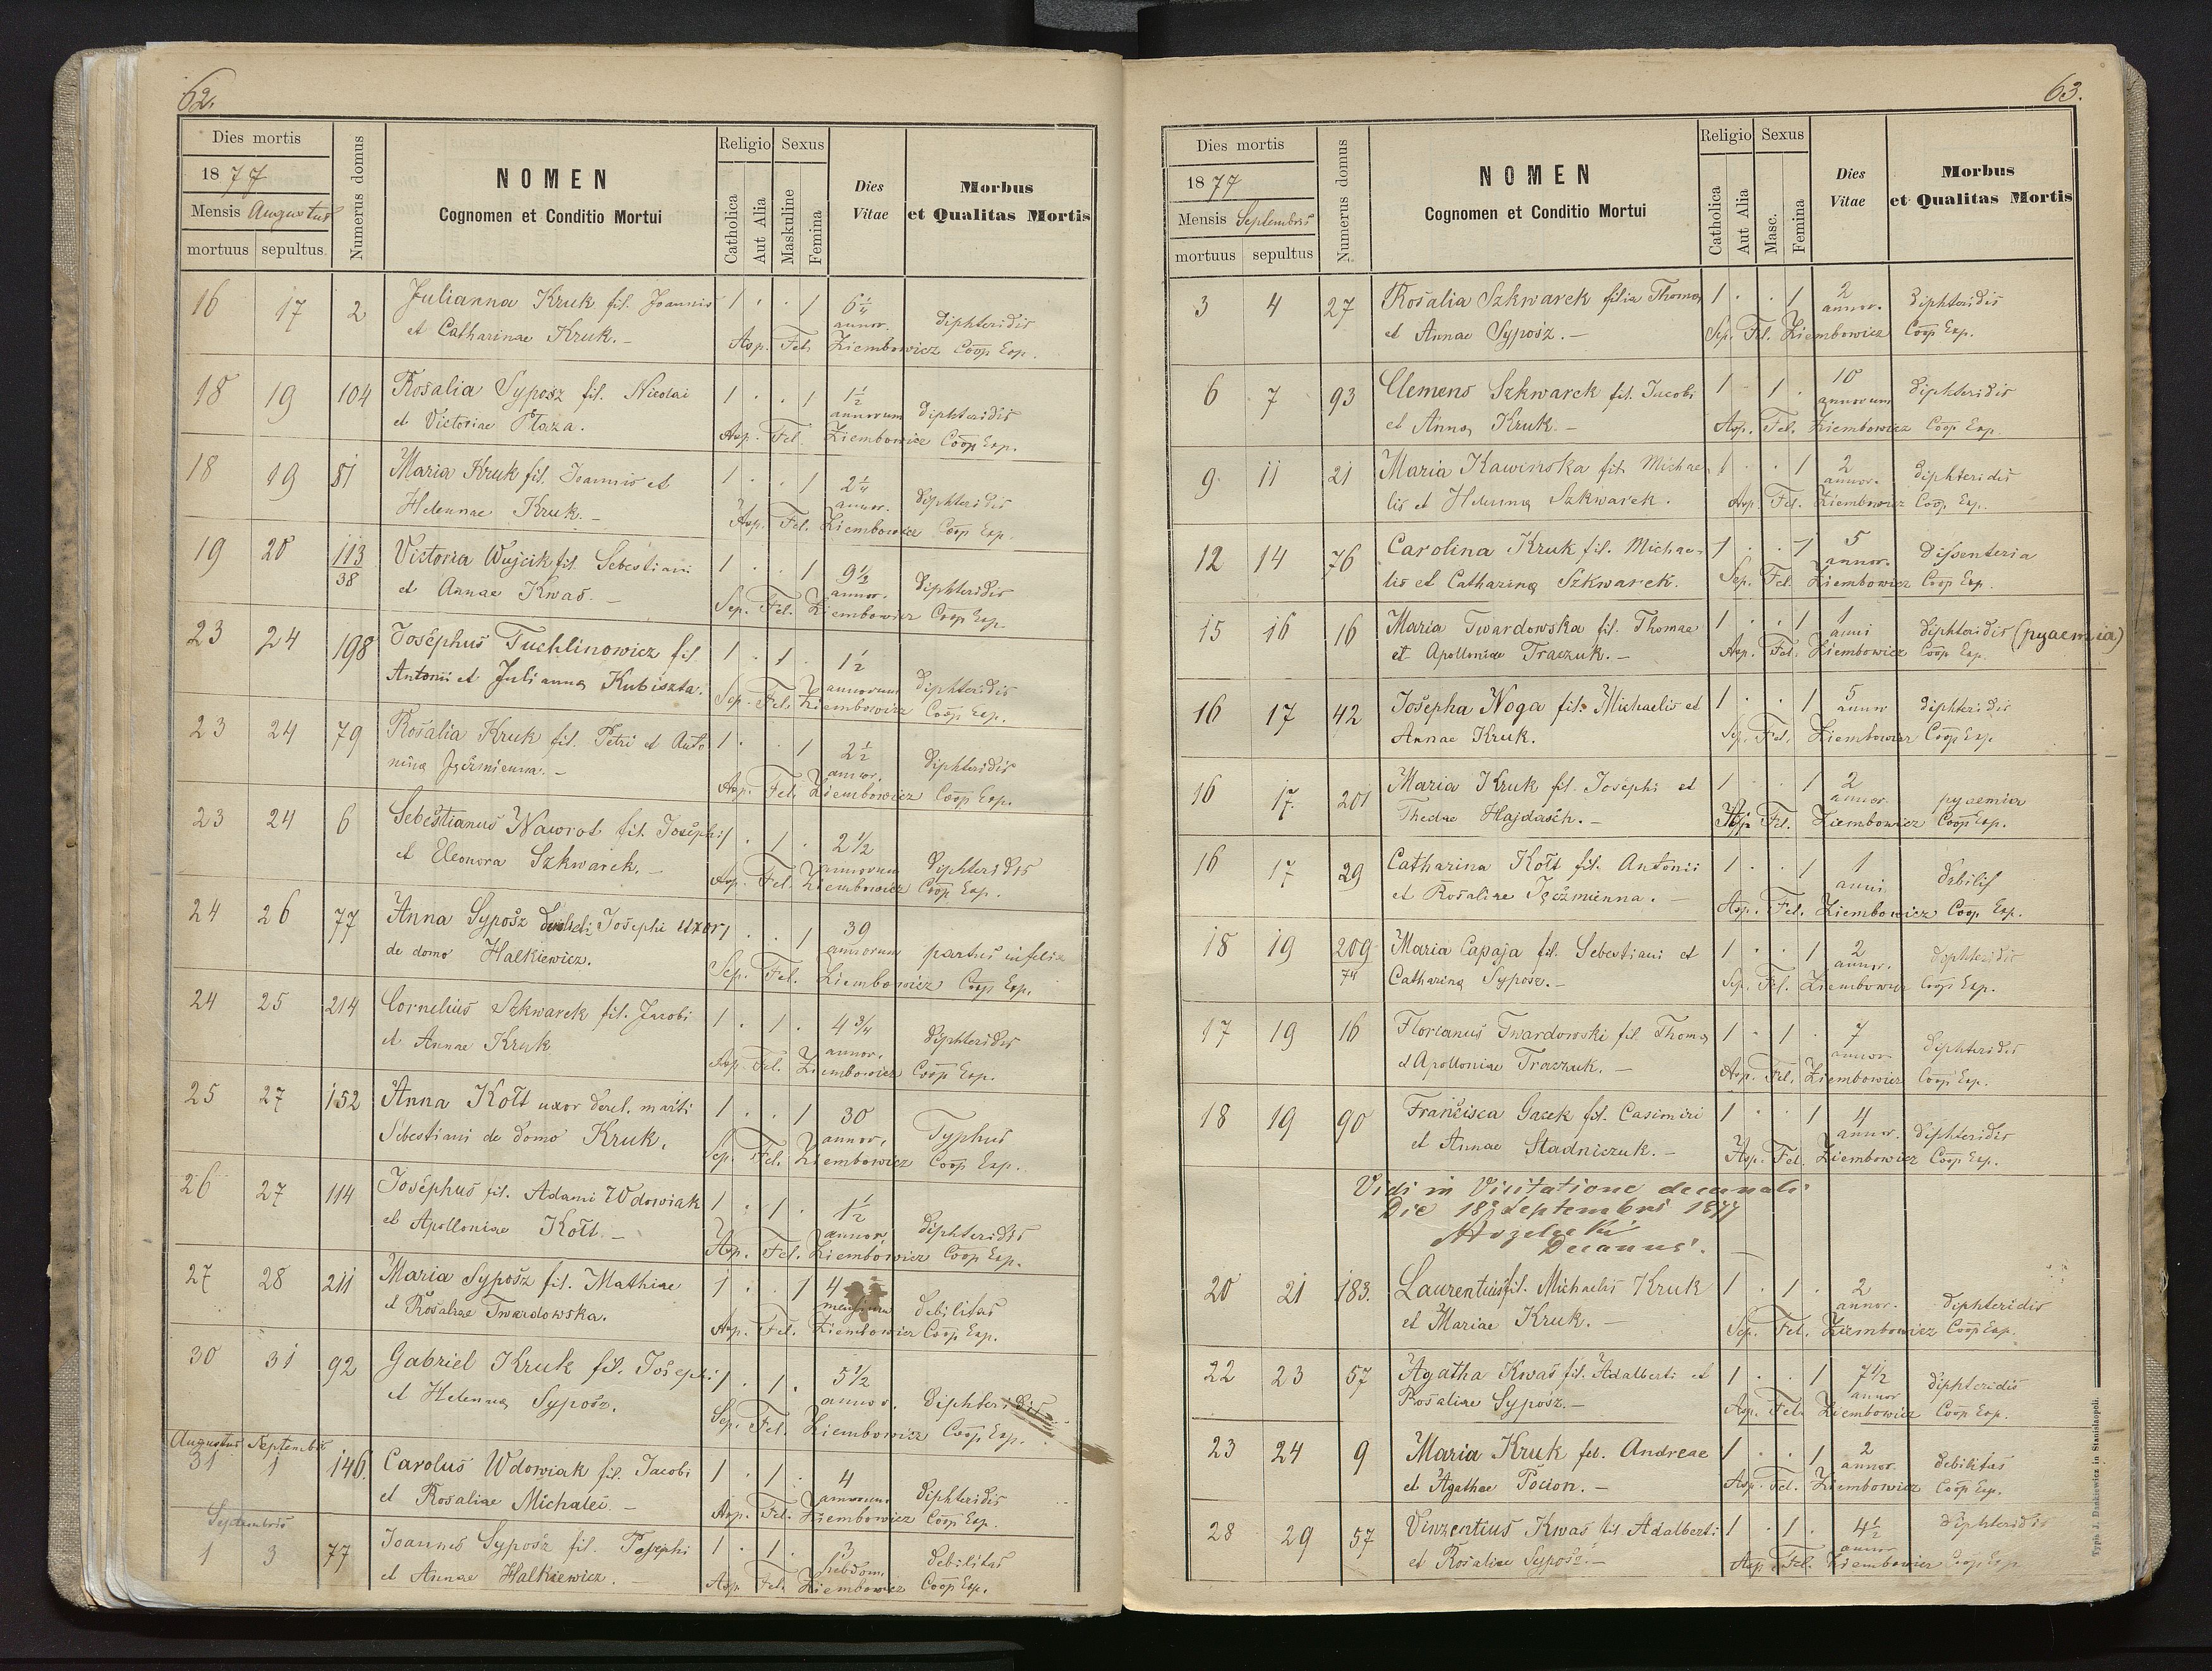 62.
Dies mortis
1877
Mensis Augustus
mortuus sepultus
Numerus domus
NOMEN
Cognomen et Conditio Mortui
Religio Sexus
Catholica
Aut Alia
Maskuline
Femina
Dies
Vitae
Morbus
et Qualitas Mortis
16 17 2 Julianna Kruk fil. Joannis 1 . . 1 6 1/4 annor. diphteridis
et Catharinae Kruk. - Asp. Fel. Ziembowicz Coop Exp.
18 19 104 Rosalia Syposz fil. Nicolai 1 . . 1 1 1/2 annorum diphteridis
et Victoriae Płaza. Asp. Fel. Ziembowicz Coop Exp.
18 19 81 Maria Kruk fil. Joannis et 1 . . 1 2 1/4 annor. diphteridis
Helennae Kruk. - Asp. Fel. Ziembowicz Coop Exp.
19 20 113/38 Victoria Wujcik fil. Sebestiani 1 . . 1 9 1/2 annor. diphteridis
et Annae Kwas. - Sep. Fel. Ziembowicz Coop Exp.
23 24 198 Josephus Tuchlinowicz fil 1 . 1 . 1 1/2 annorum diphteridis
Antonii et Julianna Kubiszta. Sep. Fel. Ziembowicz Coop Exp.
23 24 79 Rosalia Kruk fil. Petri et Anto 1 . . 1 2 1/2 annor. diphteridis
nina Jęczmienna. - Asp. Fel. Ziembowicz Coop Exp.
23 24 6 Sebestianus Nawrot fil. Josephi 1 . 1 . 2 1/2 annorum diphteridis
et Eleonora Szkwarek. - Asp. Fel. Ziembowicz Coop Exp.
24 26 77 Anna Syposz Josephi uxor 1 . . 1 39 annorum partus infelix
de domo Halkiewicz. Sep. Fel. Ziembowicz Coop Exp.
24 25 214 Cornelius Szkwarek fil. Jacobi 1 . 1 . 4 3/4 annor. diphteridis
et Annae Kruk Asp. Fel. Ziembowicz Coop Exp.
25 27 152 Anna Kołt uxor derel. mariti 1 . . 1 30 annor. Typhus
Sebestiani de domo Kruk. Sep. Fel. Ziembowicz Coop Exp.
26 27 114 Josephus fil. Adami Wdowiak 1 . 1 . 1 1/2 annor. diphteridis
et Apolloniae Kołt. - Asp. Fel. Ziembowicz Coop Exp.
27 28 211 Maria Syposz fil. Mathiae 1 . . 1 4 mensium debilitas
et Rosaliae Twardowska. Asp. Fel. Ziembowicz Coop Exp.
30 31 92 Gabriel Kruk fil. Josephi 1 . 1 . 5 1/2 annor. diphteridis
et Helenna Syposz. Sep. Fel. Ziembowicz Coop Exp.
Augustus Septembris
31 1 146. Carolus Wdowiak fil. Jacobi 1 . 1 . 4 annorum diphteridis
et Rosaliae Michalei - Asp. Fel. Ziembowicz Coop Exp.
Septembris
1 3 77 Joannes Syposz fil. Josephi 1 . 1 . 3 hebdom. debilitas
et Annae Halkiewicz. - Asp. Fel. Ziembowicz Coop Exp.
63.
Dies mortis
1877
Mensis Septembris
mortuus sepultus
Numerus domus
NOMEN
Cognomen et Conditio Mortui
Religio Sexus
Catholica
Aut Alia
Masc.
Femina
Dies
Vitae
Morbus
et Qualitas Mortis
3 4 27 Rosalia Szkwarek filia Thoma 1 . . 1 2 annor. diphteridis
et Annae Syposz. - Sep. Fel. Ziembowicz Coop Exp.
6 7 93 Clemens Szkwarek fil. Jacobi 1 . 1 . 10 annorum diphteridis
et Anna Kruk. - Asp. Fel. Ziembowicz Coop Exp.
9 11 21 Maria Kawinska fil. Michae 1 . . 1 2 annor. diphteridis
lis et Helenna Szkwarek. Asp. Fel. Ziembowicz Coop Exp.
12 14 76 Carolina Kruk fil. Michae 1 . . 1 5 annor. dissenteria
lis et Catharina Szkwarek. Sep. Fel. Ziembowicz Coop Exp.
15 16 16 Maria Twardowska fil. Thomae 1 . . 1 1 anni diphteridis (pyaemia)
et Apolloniae Traczuk. - Asp. Fel. Ziembowicz Coop Exp.
16 17 42 Josepha Noga fil. Michaelis et 1 . . 1 5 annor diphteridis
Annae Kruk. Sep. Fel. Ziembowicz Coop Exp.
16 17. 201 Maria Kruk fil. Josephi et 1 . . 1 2 annor. pyaemia
Theclae Hajdasch. - Asp. Fel. Ziembowicz Coop Exp.
16 17 29 Catharina Kołt fil. Antonii 1 . . 1 1 anni debilit
et Rosaliae Jęczmienna. - Asp. Fel. Ziembowicz Coop Exp.
18 19 209/74 Maria Capaja fil. Sebestiani et 1 . . 1 2 annor. diphteridis
Catharina Syposz. - Sep. Fel. Ziembowicz Coop Exp.
17 19 16 Florianus Twardowski fil. Thoma 1 . 1 . 7 annor diphteridis
et Apolloniae Traczuk. - Asp. Fel. Ziembowicz Coop Exp.
18 19 90 Francisca Gacek fil. Casimiri 1 . . 1 4 annor. diphteridis
et Annae Stadniczuk. - Asp. Fel. Ziembowicz Coop Exp.
Vidi in Visitatione decanali
Die 18 Septembris 1877
Decanus. -
20 21 183. Laurentius fil. Michaelis Kruk 1 . 1 . 2 annor. diphteridis
et Mariae Kruk. - Sep. Fel. Ziembowicz Coop Exp.
22 23 57 Agatha Kwas fil. Adalberti et 1 . . 1 7 1/2 annor diphteridis
Rosaliae Syposz. - Asp. Fel. Ziembowicz Coop Exp.
23 24 9 Maria Kruk fil. Andreae 1 . . 1 2 annor. debilitas
et Agathae Pocion. - Asp. Fel. Ziembowicz Coop Exp.
28 29 57 Vinzentius Kwas fil Adalberti 1 . 1 . 4 1/2 annor diphteridis
et Rosaliae Syposz. - Asp. Fel. Ziembowicz Coop Exp
Typis J. Dankiewicz in Stanislaopoli.